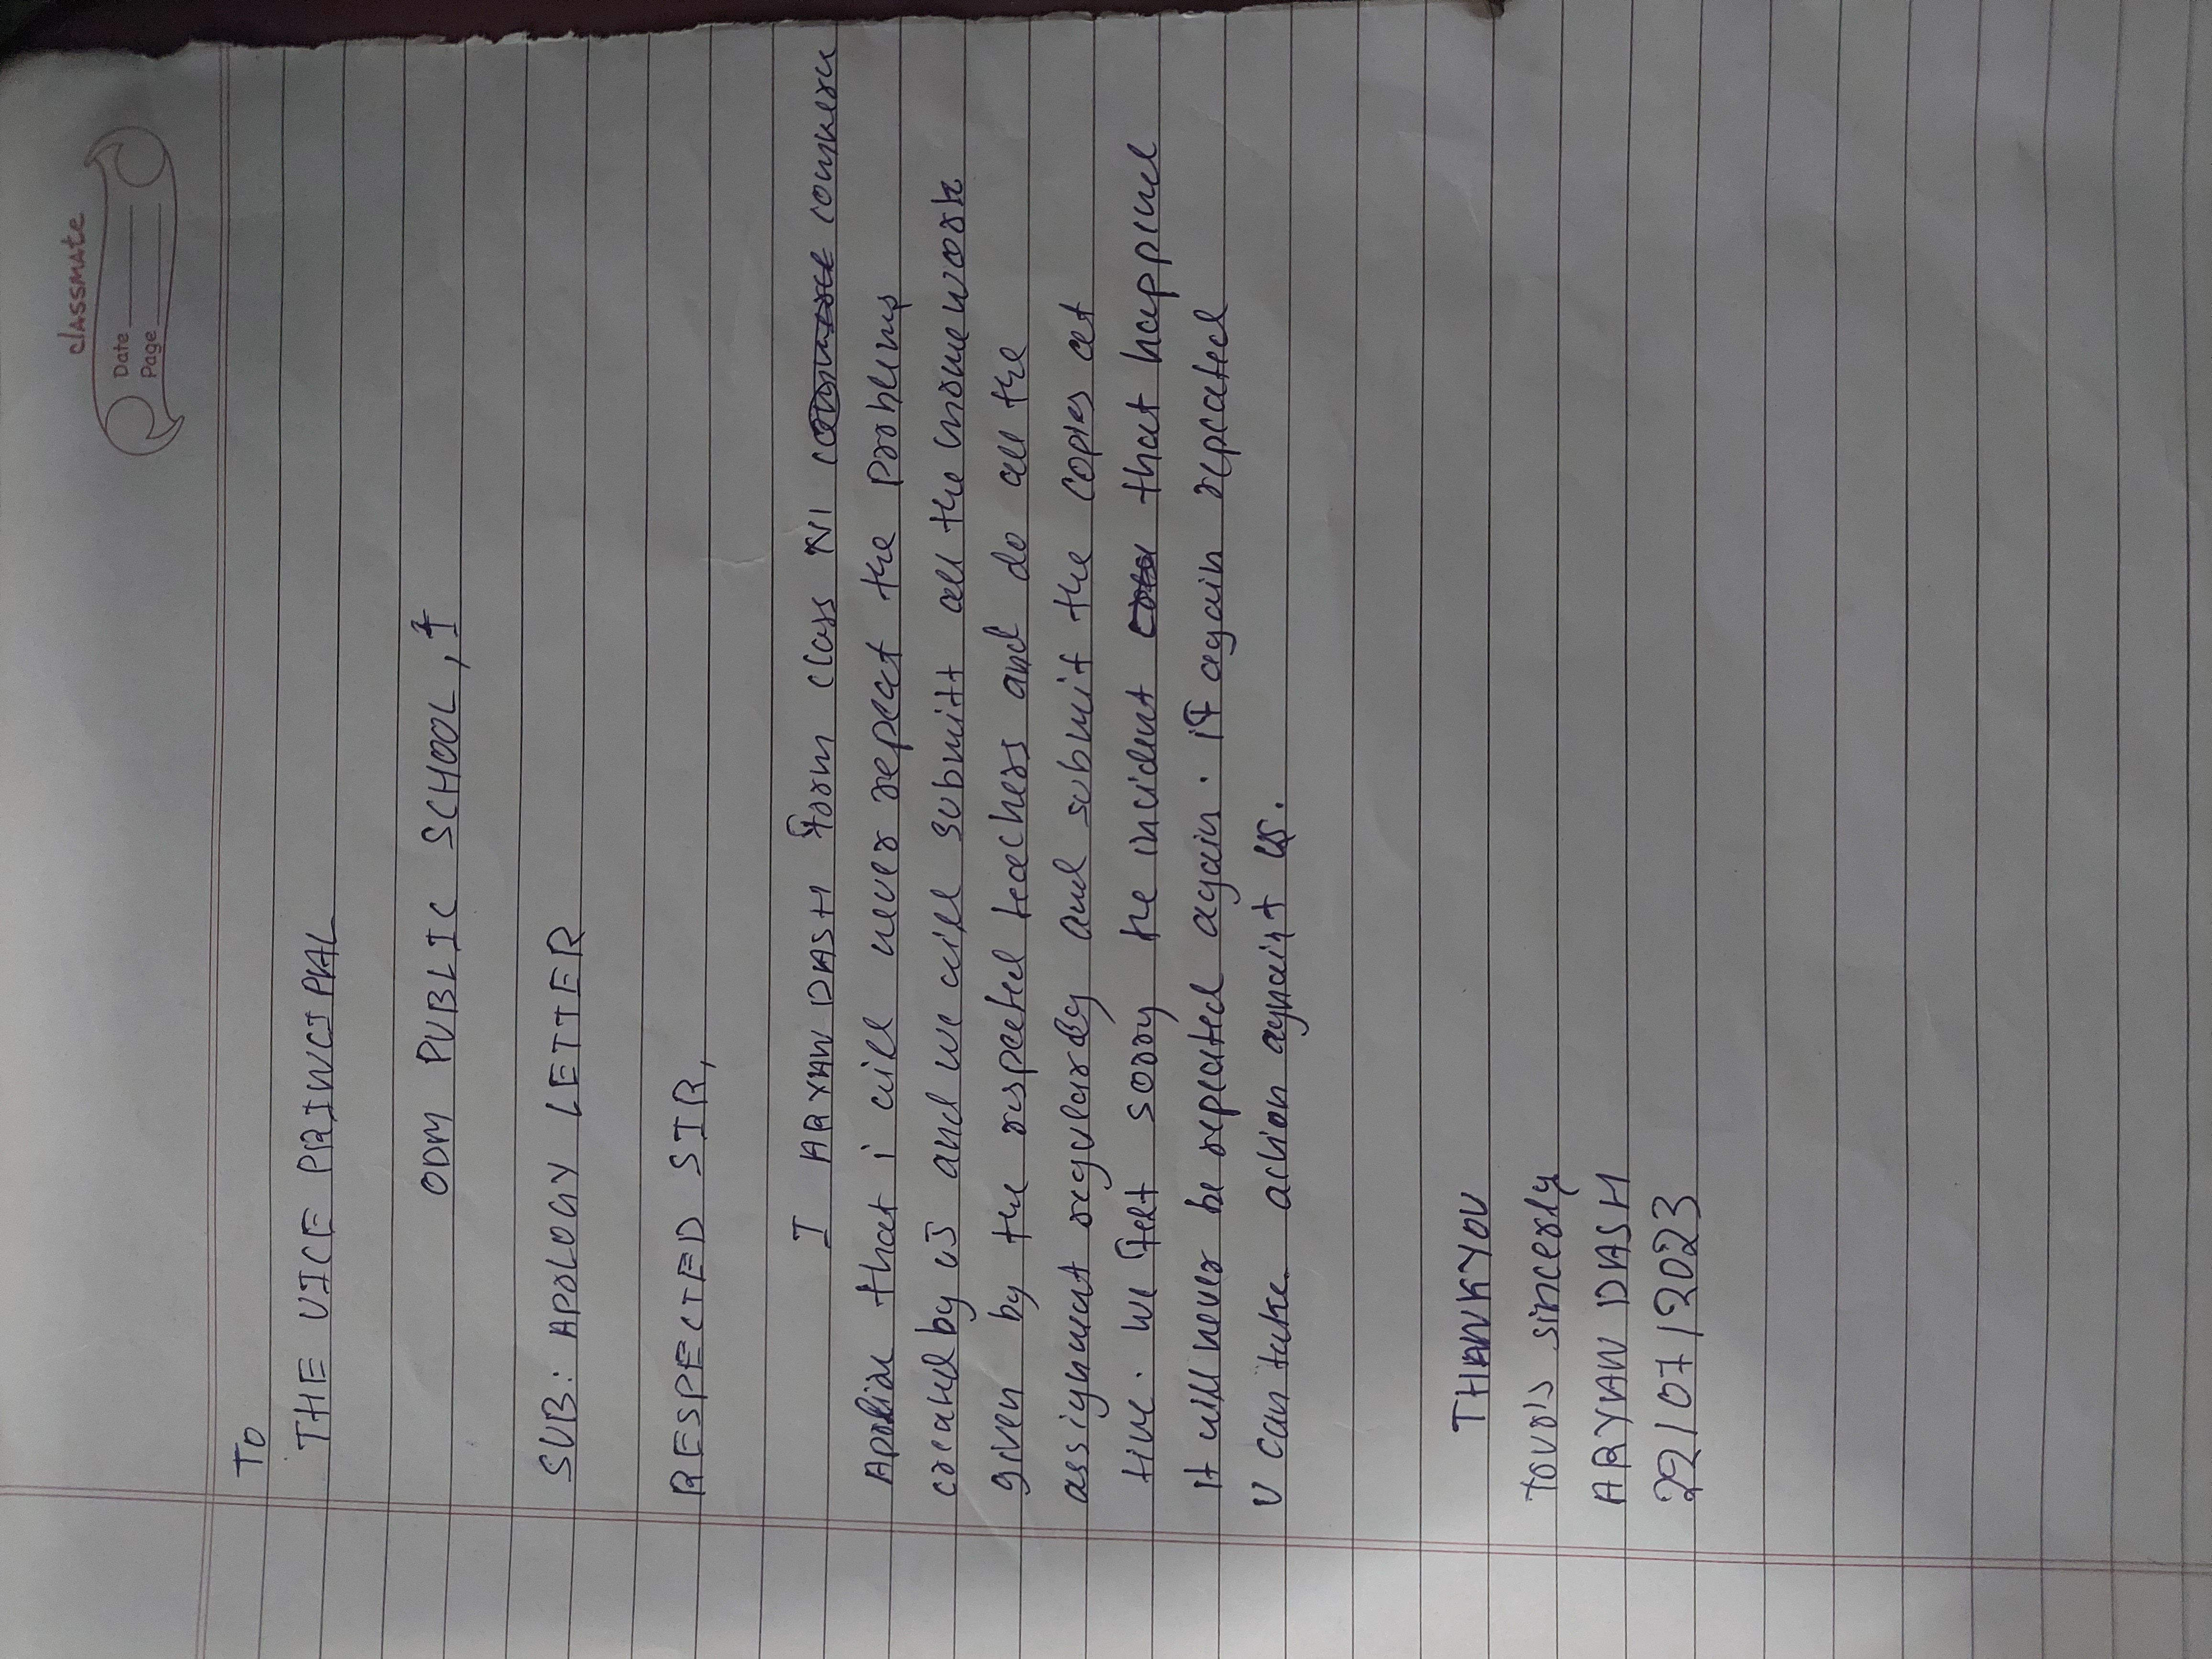 classmate
Date
Page
To
THE VICE PRINCIPAL
ODM PUBLIC SCHOOL,
SUB: APOLOGY LETTER
RESPECTED SIR,
I ARYAN DASH form class XI
that i will never repeat the problems
by us and we will submitt all the homework
given by the respected teachers and do all the
assignment and submit the copies at
time. we felt sorry the incident that
It will never be repeated again. if again repeated
U can take action against us.
THANKYOU
sincerly
ARYAN DASH
22/07/2023